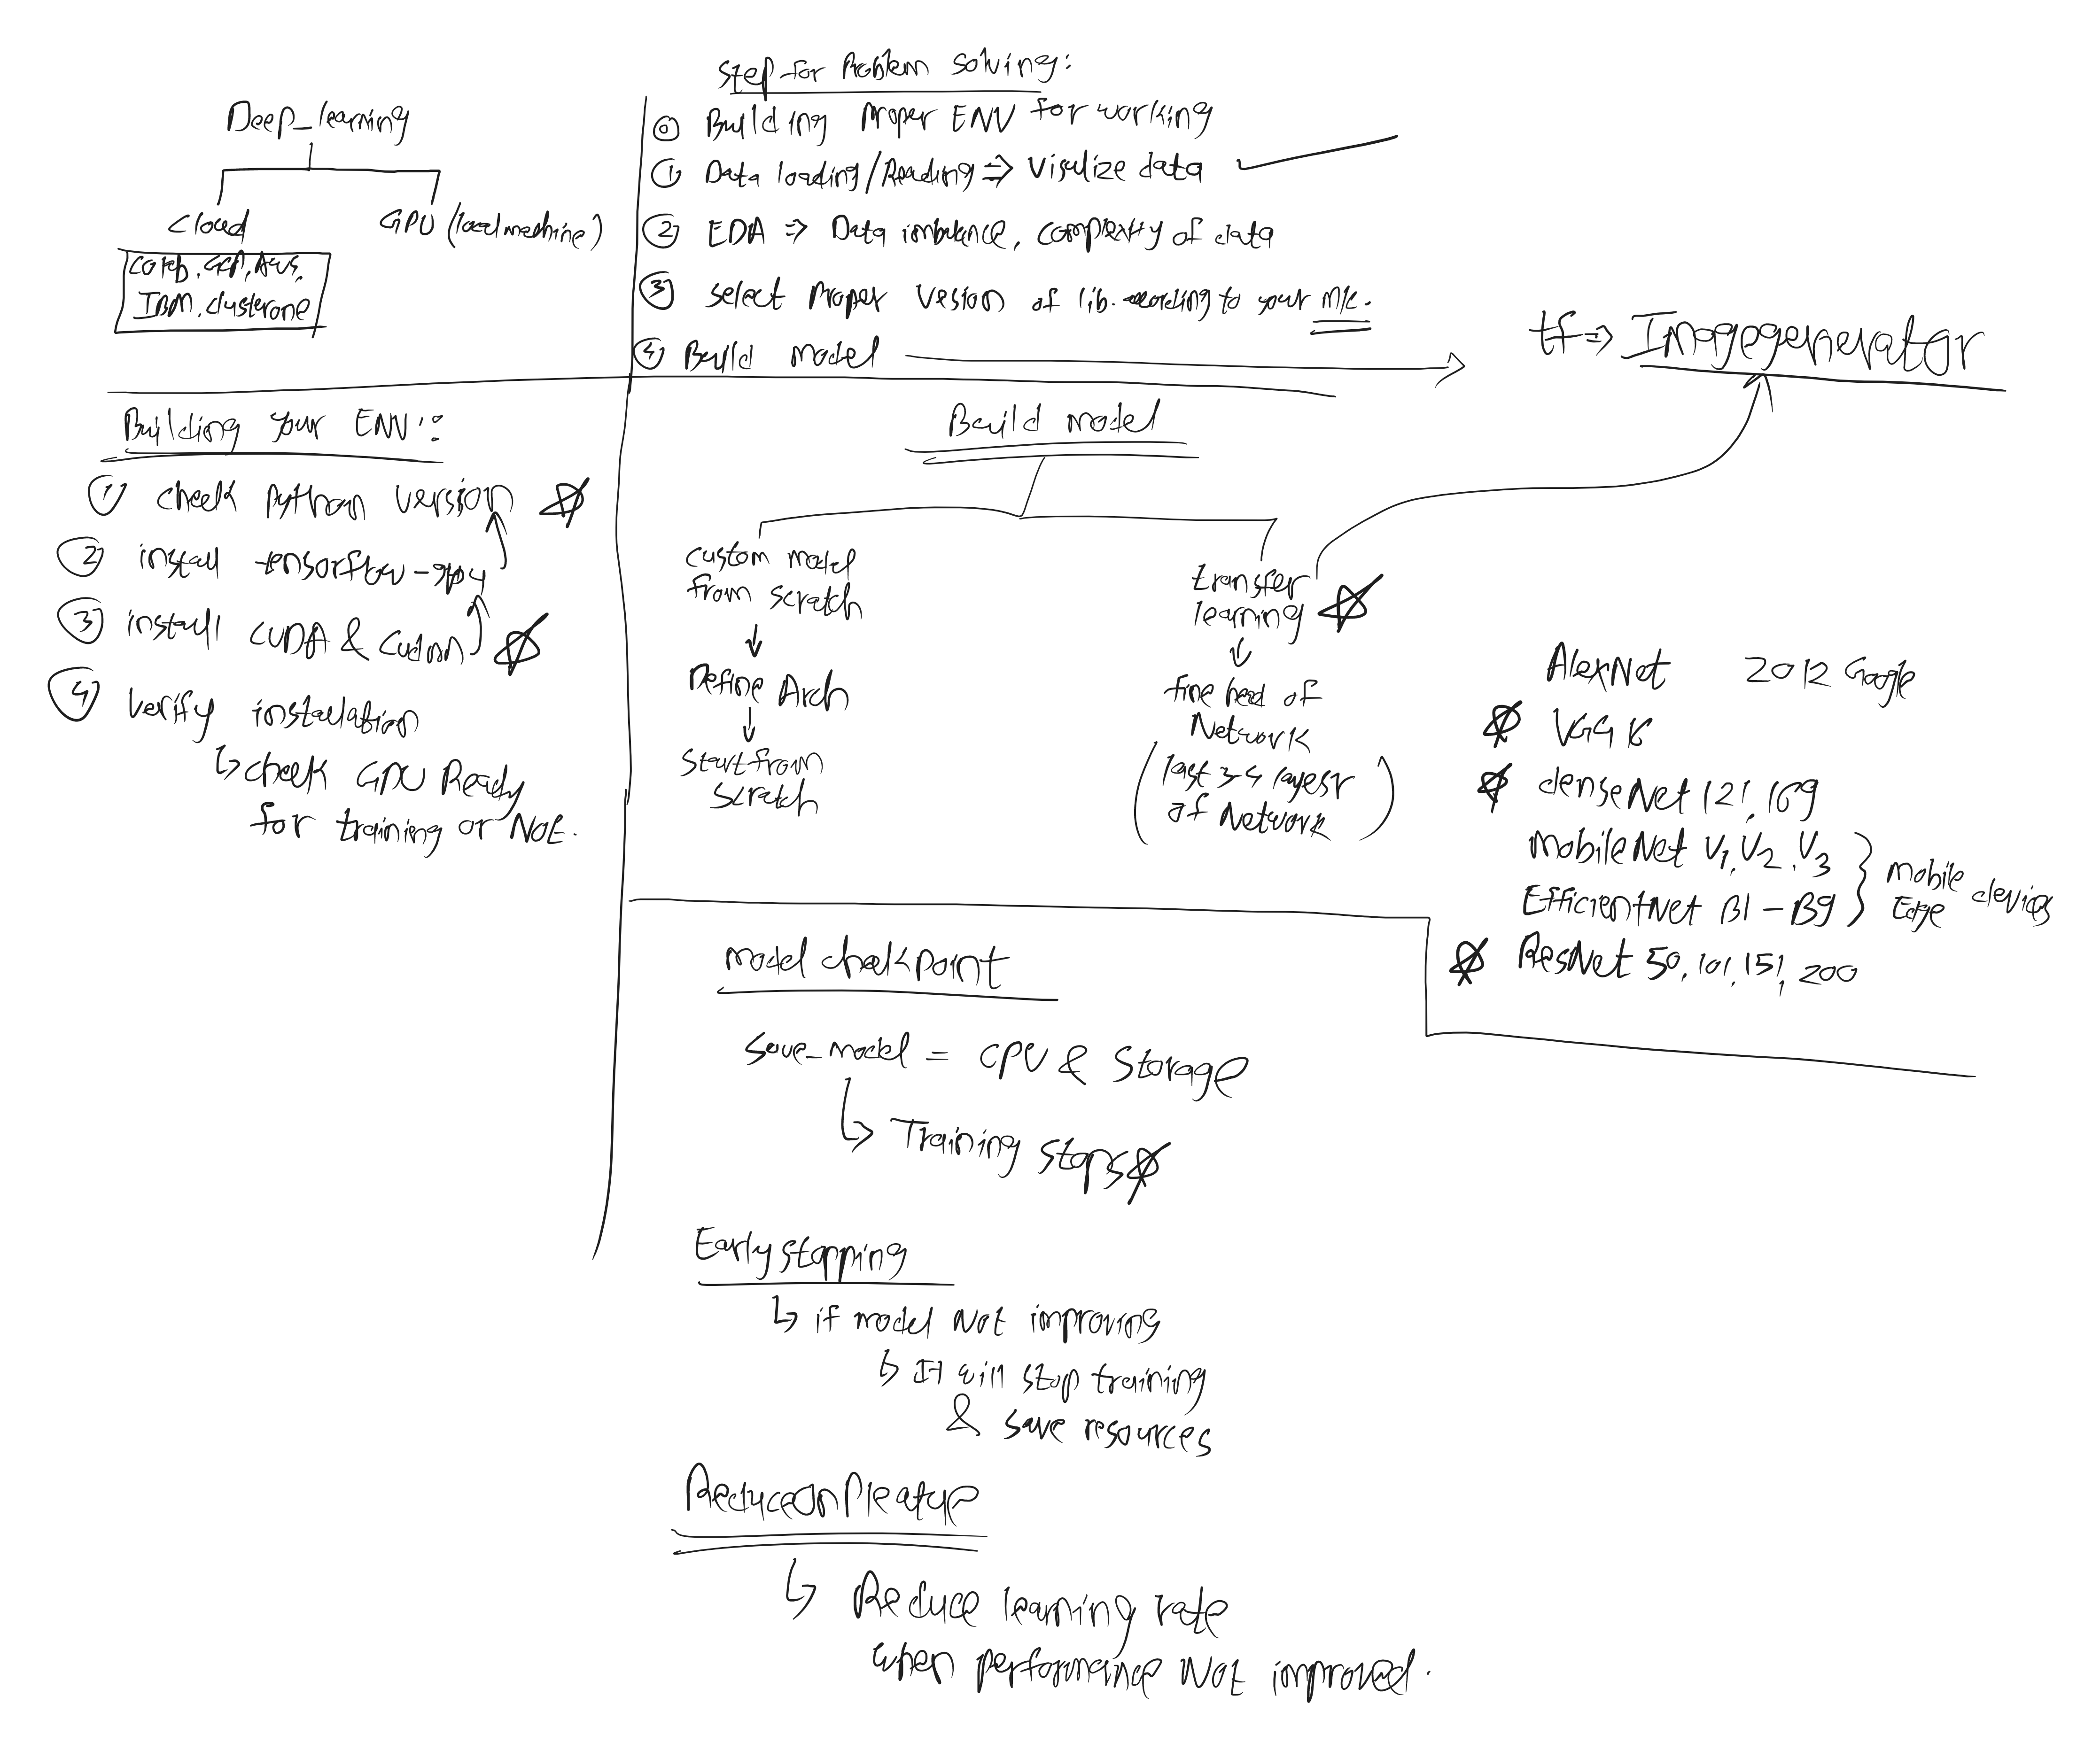 Deep_learning
Cloud
GPU (local machine)
Colab, GCP, AWS,
IBM, clusterone
Step for Problem solving:
0 Building Proper ENV for working
1 Data loading/Reading => Visulize data
2 EDA => Data imbalance, complexity of data
3 select Proper Vesion of lib. according to your M/c.
4 Build model
tf => Imagegenerator
Building your ENV:
1 check Python version
2 install tensorflow-gpu
3 install CUDA & Cudnn
4 Verify installation
check GPU Ready
for training or Not.
Build model
custom model
from scratch
Define Arch
Start from
scratch
transfer
learning
fine head of
Network
(last 3-4 layesr
of Network)
AlexNet 2012 Google
VGG 16
denseNet 121, 169
MobileNet V1, V2, V3
EfficientNet B1 - B9
mobile devices
Edge
ResNet 50, 101, 151, 200
Model checkpoint
Save_model = CPU & Storage
Training stops
Early stopping
if model Not improving
It will stop training
& save resources
ReduceOnPleatue
Reduce learning rate
when performance Not improved.